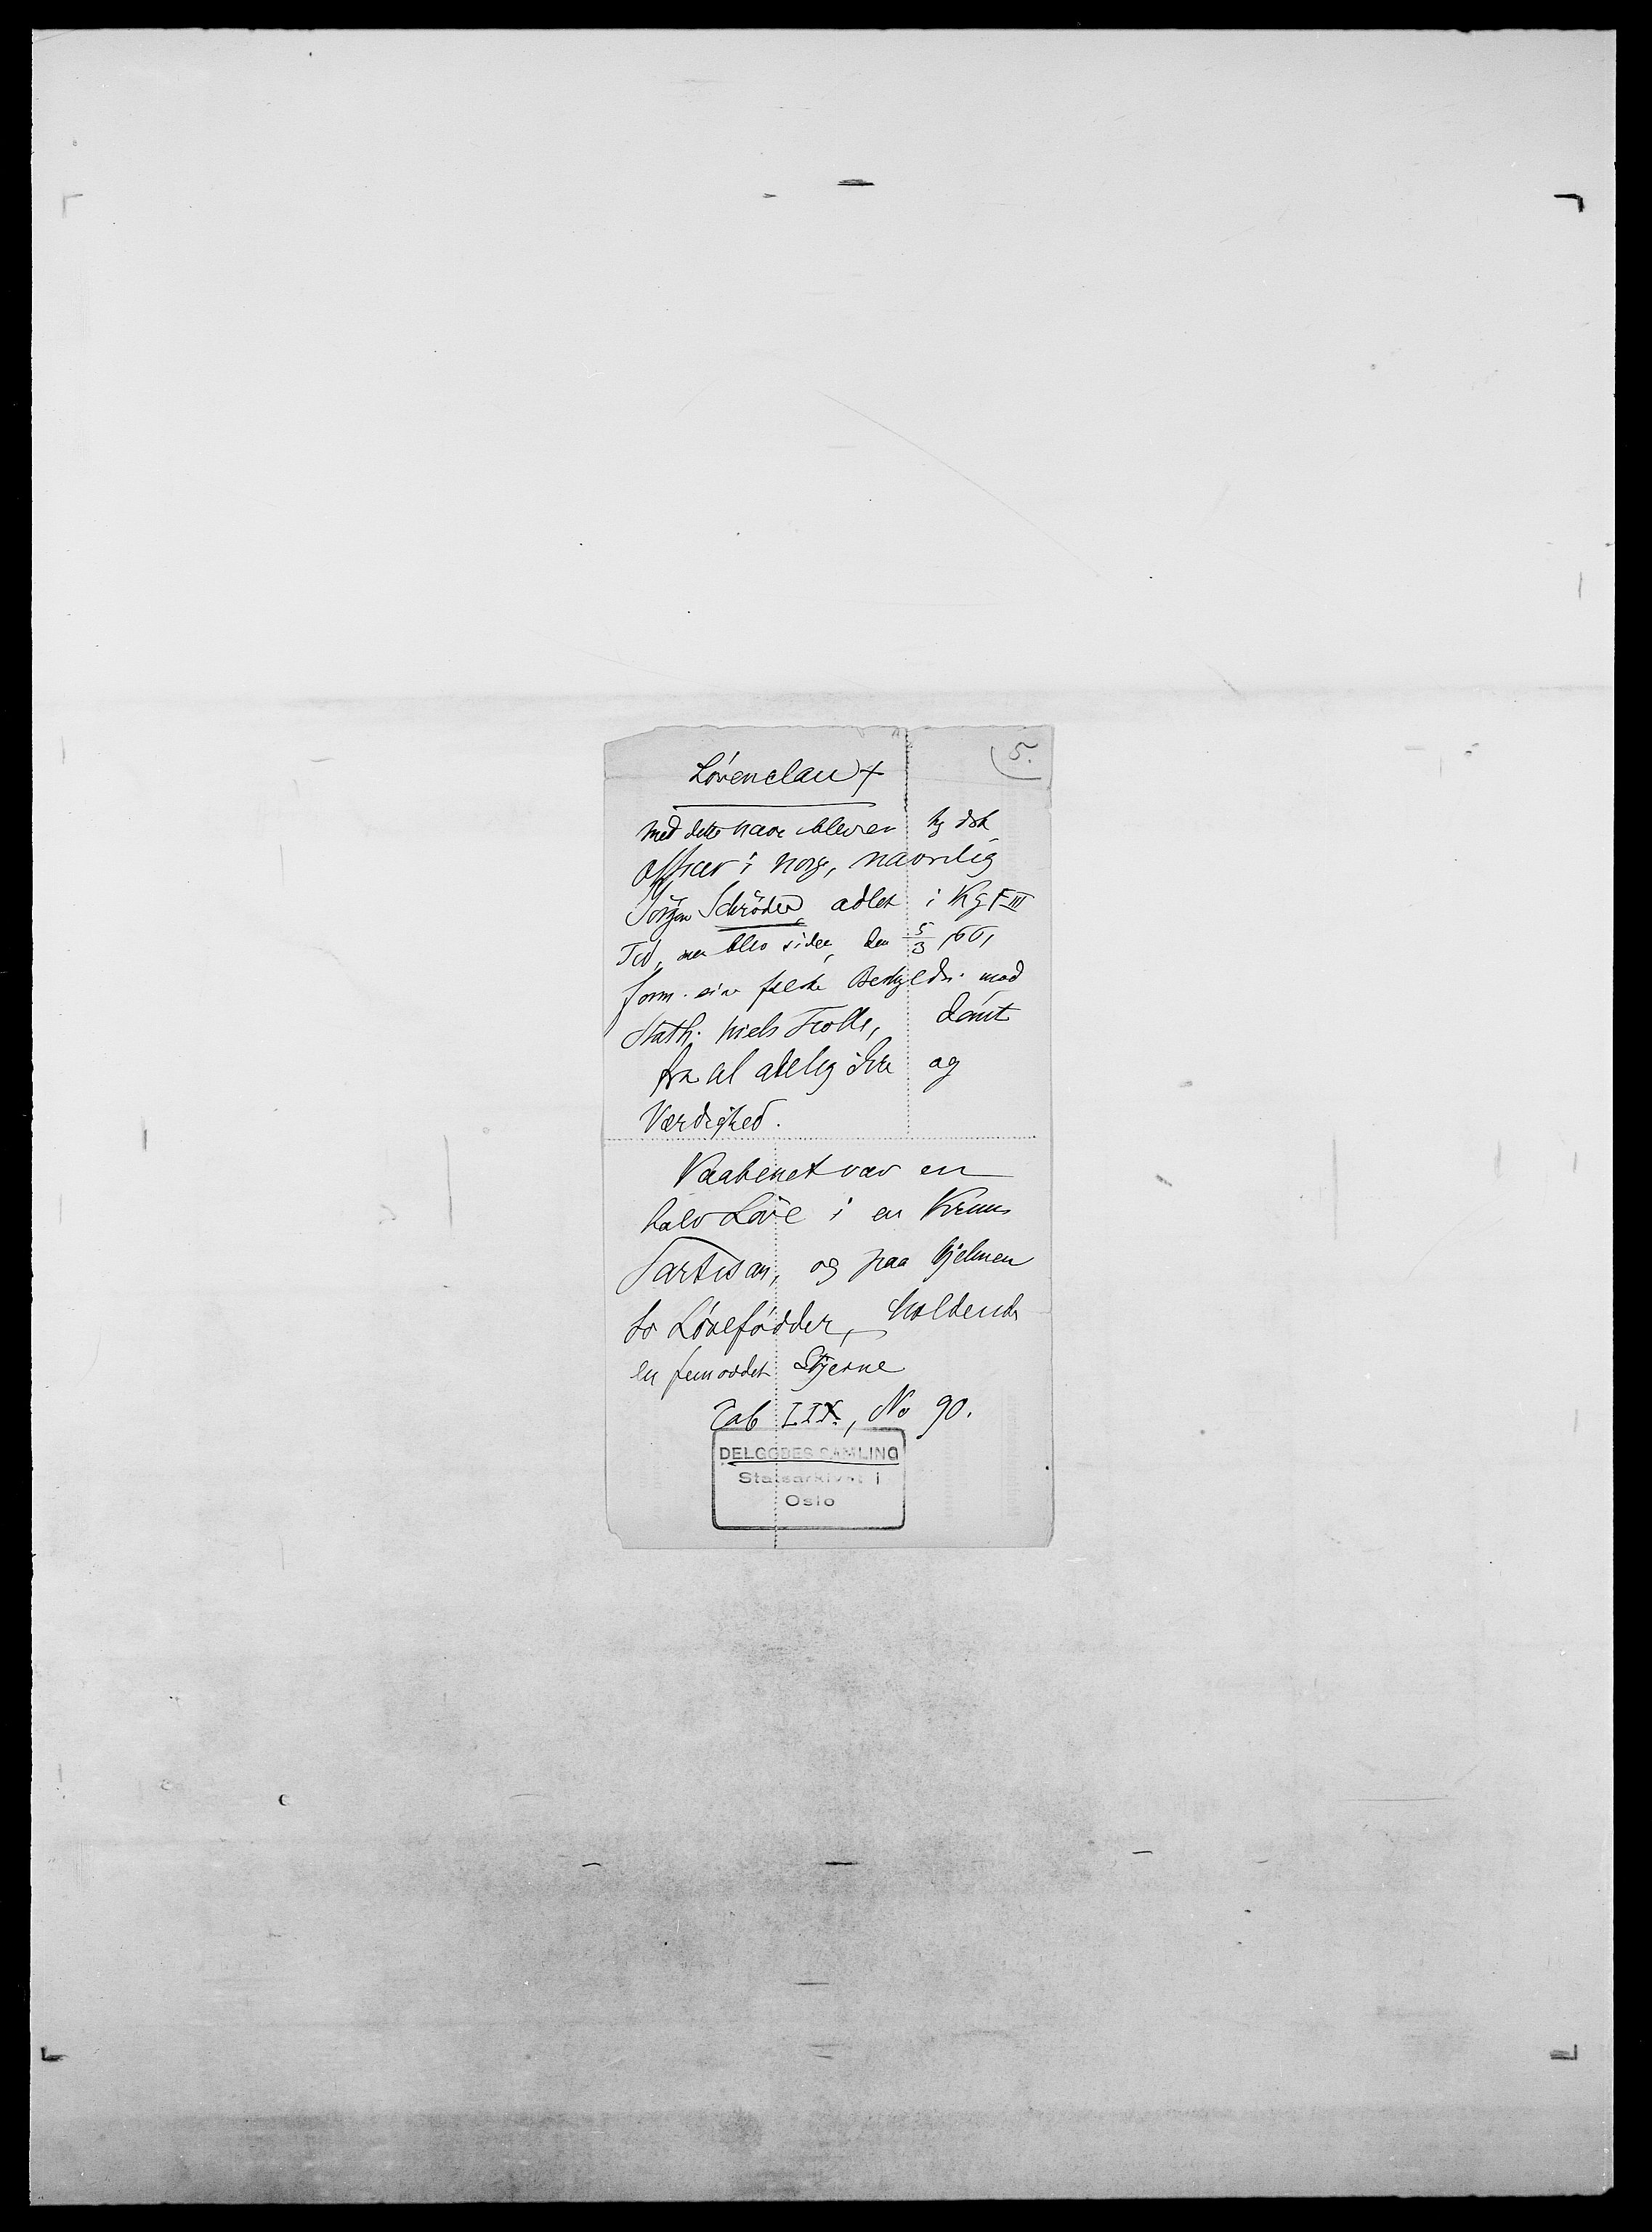 5.
Lövenclau +
med dette navn blev en kg dsk
officer i Norge, navnlig
Jörgen Schröder, adlet i Kg F III
Tid, men blev siden, den 5/3 1661
form. sine falske Beskyldn. mod
Stath. Niels Trolle, dömt
fra al adelig Ære og
Værdighed.
Vaabenet var en
halv Löve i en
Partisan, og paa Hjelmen
to Lövefödder, holdende
en femoddet Stjerne
Tab LIX, No 90.
DELGOBES SAMLING
Statsarkivet i
Oslo